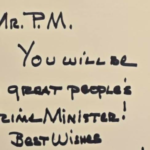 Mr. P.M.
You will be
great people's
rime Minister!
Best Wishes